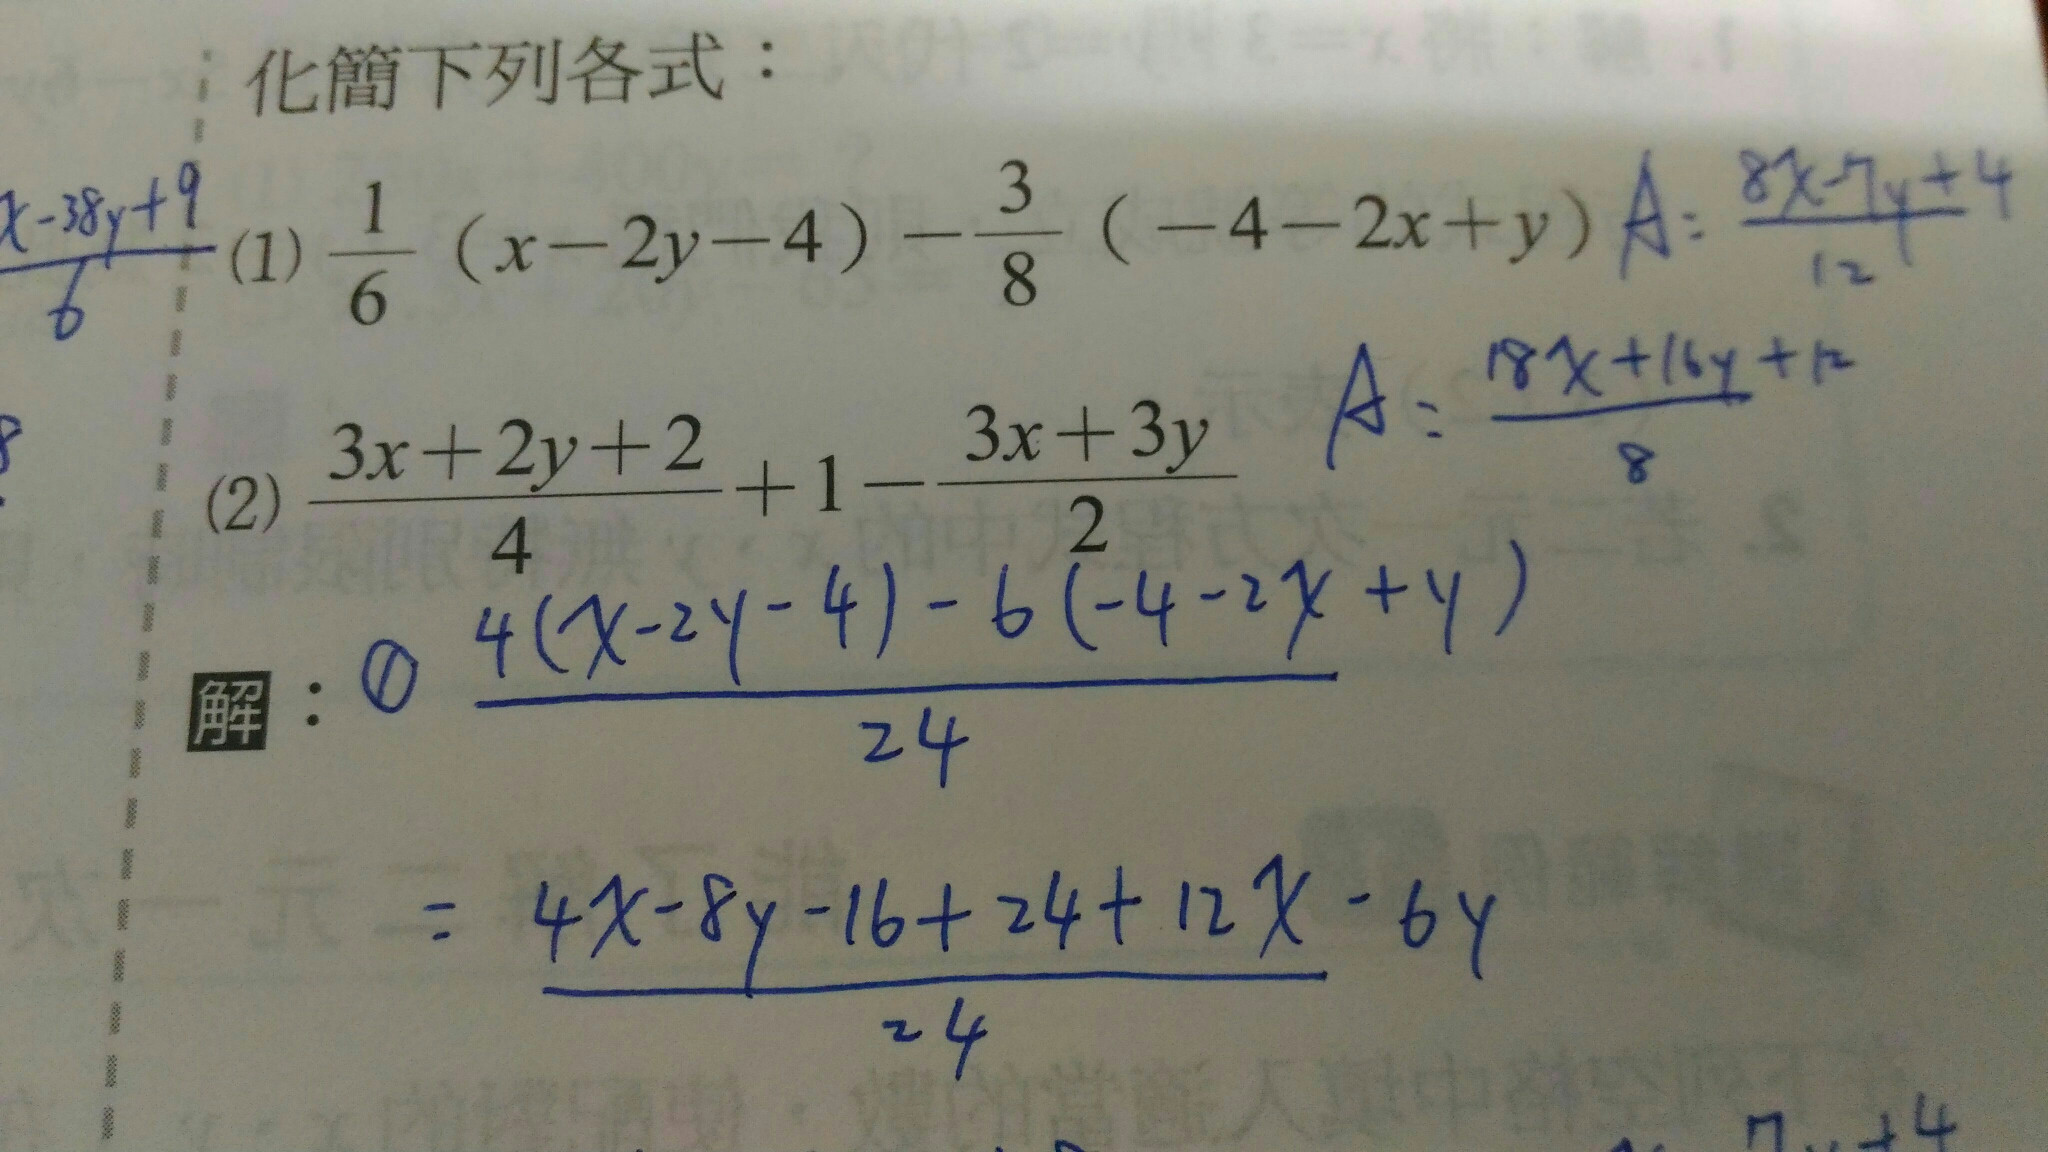 化簡下列各式：
x-38y+9
6
(1) 1/6 (x-2y-4) - 3/8 (-4-2x+y) A= 8x-7y+4 / 12
(2) 3x+2y+2 / 4 + 1 - 3x+3y / 2 A= 18x+16y+12 / 8
8
解： ① 4(x-2y-4) - 6(-4-2x+y)
24
= 4x-8y-16+24+12x-6y
24
7y+4